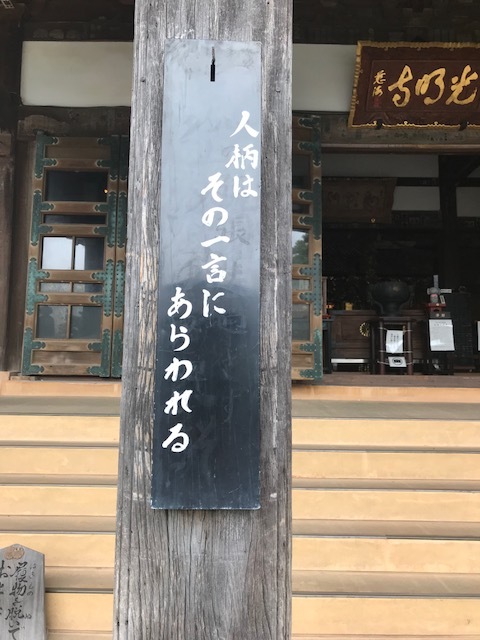 人柄は
その一言に
あらわれる
光明寺
履物を脱いで